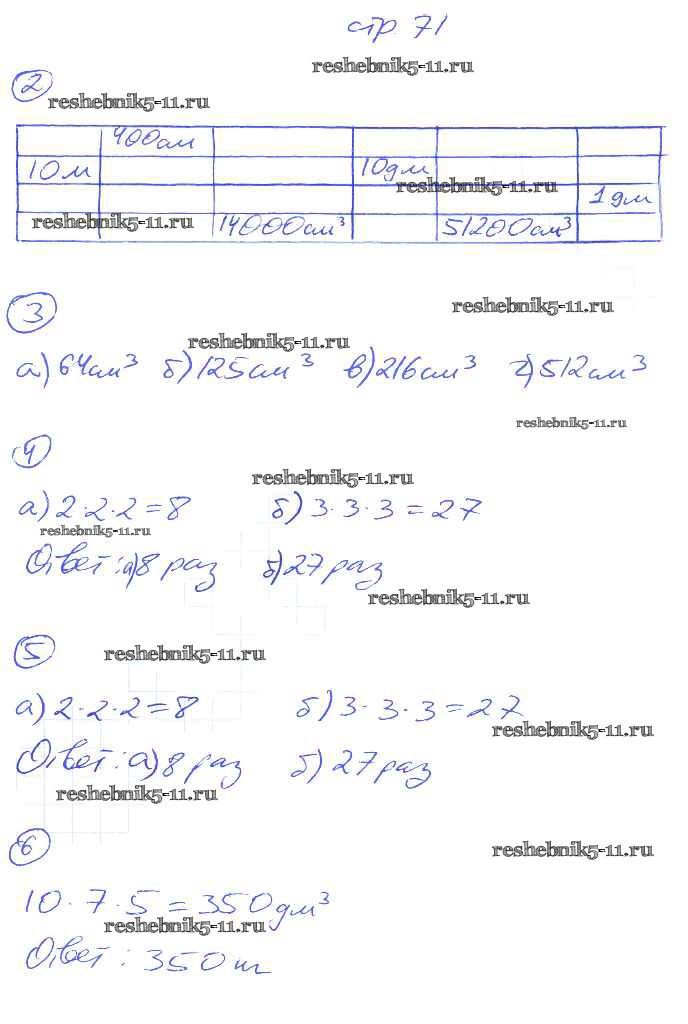 стр 71
reshebnik5-11.ru
2
reshebnik5-11.ru
400см
10м 10дм
reshebnik5-11.ru
1дм
reshebnik5-11.ru 14000см³ 51200см³
3 reshebnik5-11.ru
reshebnik5-11.ru
а) 64см³ б) 125см³ в) 216см³ г) 512см³
reshebnik5-11.ru
4
reshebnik5-11.ru
а) 2·2·2=8 б) 3·3·3=27
reshebnik5-11.ru
Ответ: а) 8 раз б) 27 раз
reshebnik5-11.ru
5 reshebnik5-11.ru
а) 2·2·2=8 б) 3·3·3=27
reshebnik5-11.ru
Ответ: а) 8 раз б) 27 раз
reshebnik5-11.ru
6 reshebnik5-11.ru
10·7·5=350дм³
reshebnik5-11.ru
Ответ: 350 ш